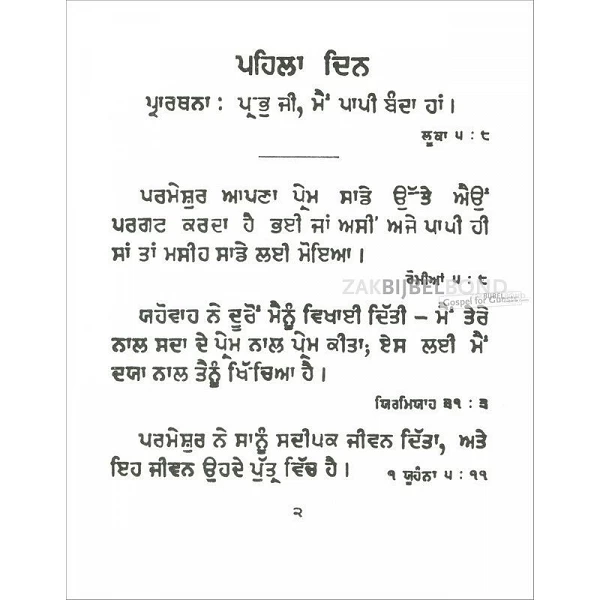 ਪਹਿਲਾ ਦਿਨ
ਪ੍ਰਾਰਥਨਾ : ਪ੍ਰਭੁ ਜੀ, ਮੈਂ ਪਾਪੀ ਬੰਦਾ ਹਾਂ।
ਲੂਕਾ ੫ : ੮
ਪਰਮੇਸ਼ੁਰ ਆਪਣਾ ਪ੍ਰੇਮ ਸਾਡੇ ਉੱਤੇ ਐਉਂ
ਪਰਗਟ ਕਰਦਾ ਹੈ ਭਈ ਜਾਂ ਅਸੀਂ ਅਜੇ ਪਾਪੀ ਹੀ
ਸਾਂ ਤਾਂ ਮਸੀਹ ਸਾਡੇ ਲਈ ਮੋਇਆ।
ਰੋਮੀਆਂ ੫ : ੮
ZAKBIJBELBOND
BIJBELBOND
Gospel for Guests
ਯਹੋਵਾਹ ਨੇ ਦੂਰੋਂ ਮੈਨੂੰ ਵਿਖਾਈ ਦਿੱਤੀ – ਮੈਂ ਤੇਰੇ
ਨਾਲ ਸਦਾ ਦੇ ਪ੍ਰੇਮ ਨਾਲ ਪ੍ਰੇਮ ਕੀਤਾ; ਏਸ ਲਈ ਮੈਂ
ਦਯਾ ਨਾਲ ਤੈਨੂੰ ਖਿੱਚਿਆ ਹੈ।
ਯਿਰਮਿਯਾਹ ੩੧ : ੩
ਪਰਮੇਸ਼ੁਰ ਨੇ ਸਾਨੂੰ ਸਦੀਪਕ ਜੀਵਨ ਦਿੱਤਾ, ਅਤੇ
ਇਹ ਜੀਵਨ ਉਹਦੇ ਪੁੱਤ੍ਰ ਵਿੱਚ ਹੈ। ੧ ਯੂਹੰਨਾ ੫ : ੧੧
੨